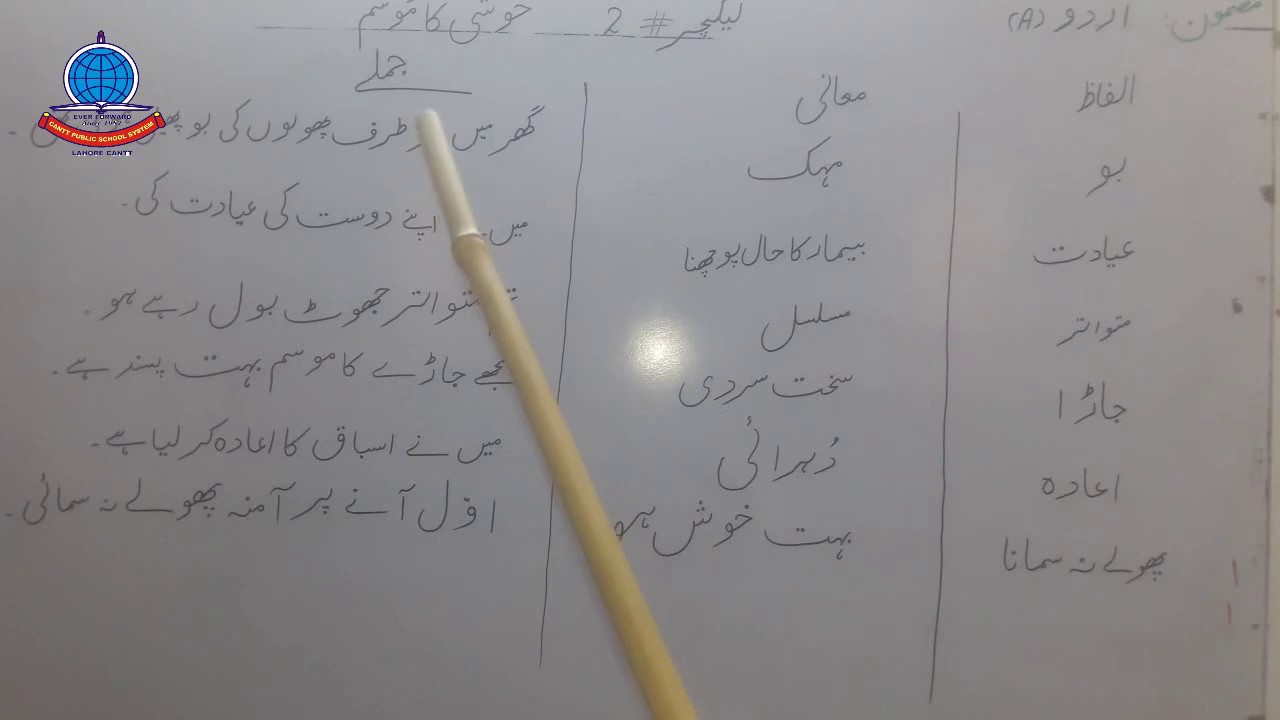 مضمون اردو (A) لیکچر # 2 خوشی کا موسم
الفاظ معانی جملے
بو مہک گھر میں طرف پھولوں کی بو
عیادت بیمار کا حال پوچھنا میں اپنے دوست کی عیادت کی۔
متواتر مسلسل متواتر جھوٹ بول رہے ہو۔
جاڑا سخت سردی مجھے جاڑے کا موسم بہت پسند ہے۔
اعادہ دُہرائی میں نے اسباق کا اعادہ کر لیا ہے۔
پھولے نہ سمانا بہت خوش اوّل آنے پر آمنہ پھولے نہ سمائی۔
EVER FORWARD
CANTT PUBLIC SCHOOL SYSTEM
LAHORE CANTT